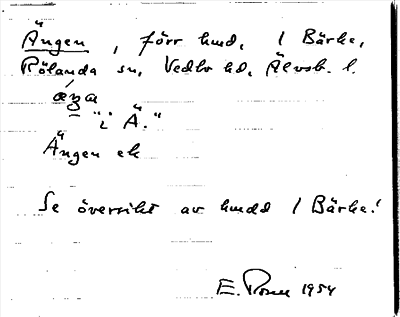 Ängen, förr hmd, 1 Bärke,
Rölanda sn, Vedbo hd, Älvsb. l.
æŋa
"i Ä."
Ängen ek
Se översikt av hmdd 1 Bärke!
E. Rosell 1954